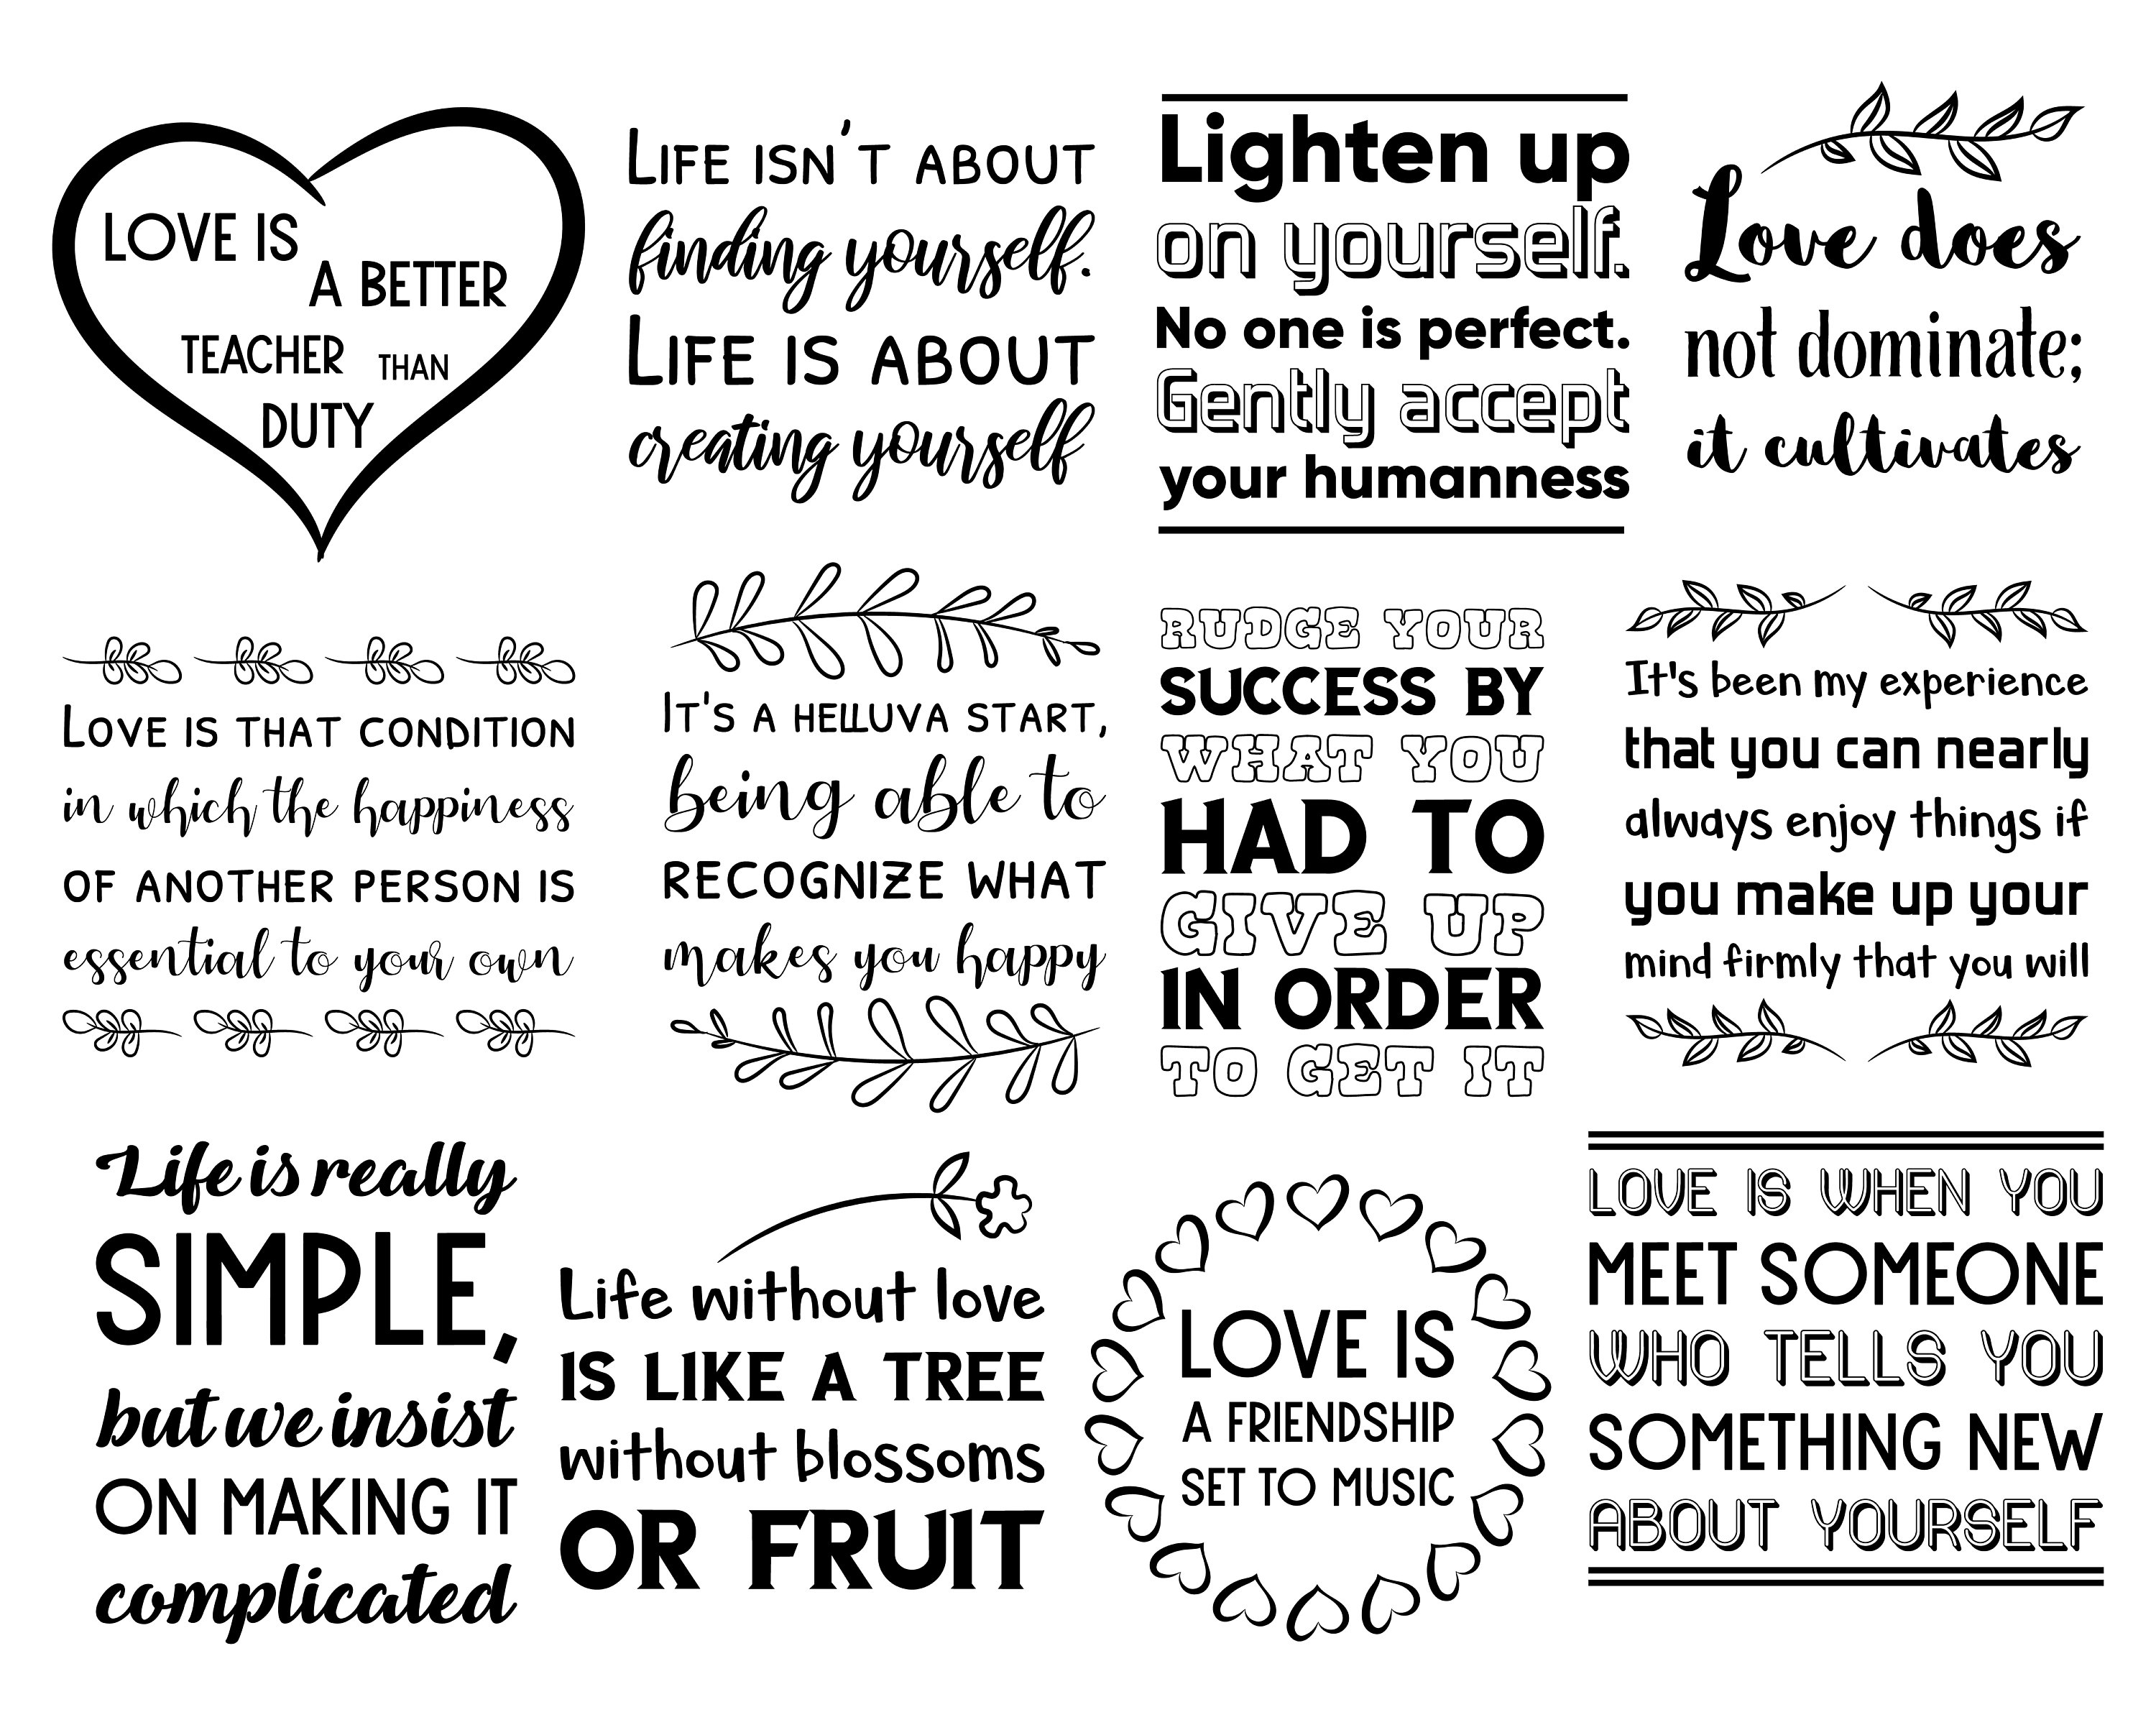 LOVE IS
A BETTER
TEACHER THAN
DUTY
LIFE ISN'T ABOUT
finding yourself.
LIFE IS ABOUT
creating yourself
Lighten up
on yourself.
No one is perfect.
Gently accept
your humanness
Love does
not dominate;
it cultivates
LOVE IS THAT CONDITION
in which the happiness
OF ANOTHER PERSON IS
essential to your own
IT'S A HELLUVA START,
being able to
RECOGNIZE WHAT
makes you happy
RUDGE YOUR
SUCCESS BY
WHAT YOU
HAD TO
GIVE UP
IN ORDER
TO GET IT
It's been my experience
that you can nearly
always enjoy things if
you make up your
mind firmly that you will
Life is really
SIMPLE,
but we insist
ON MAKING IT
complicated
Life without love
IS LIKE A TREE
without blossoms
OR FRUIT
LOVE IS
A FRIENDSHIP
SET TO MUSIC
LOVE IS WHEN YOU
MEET SOMEONE
WHO TELLS YOU
SOMETHING NEW
ABOUT YOURSELF